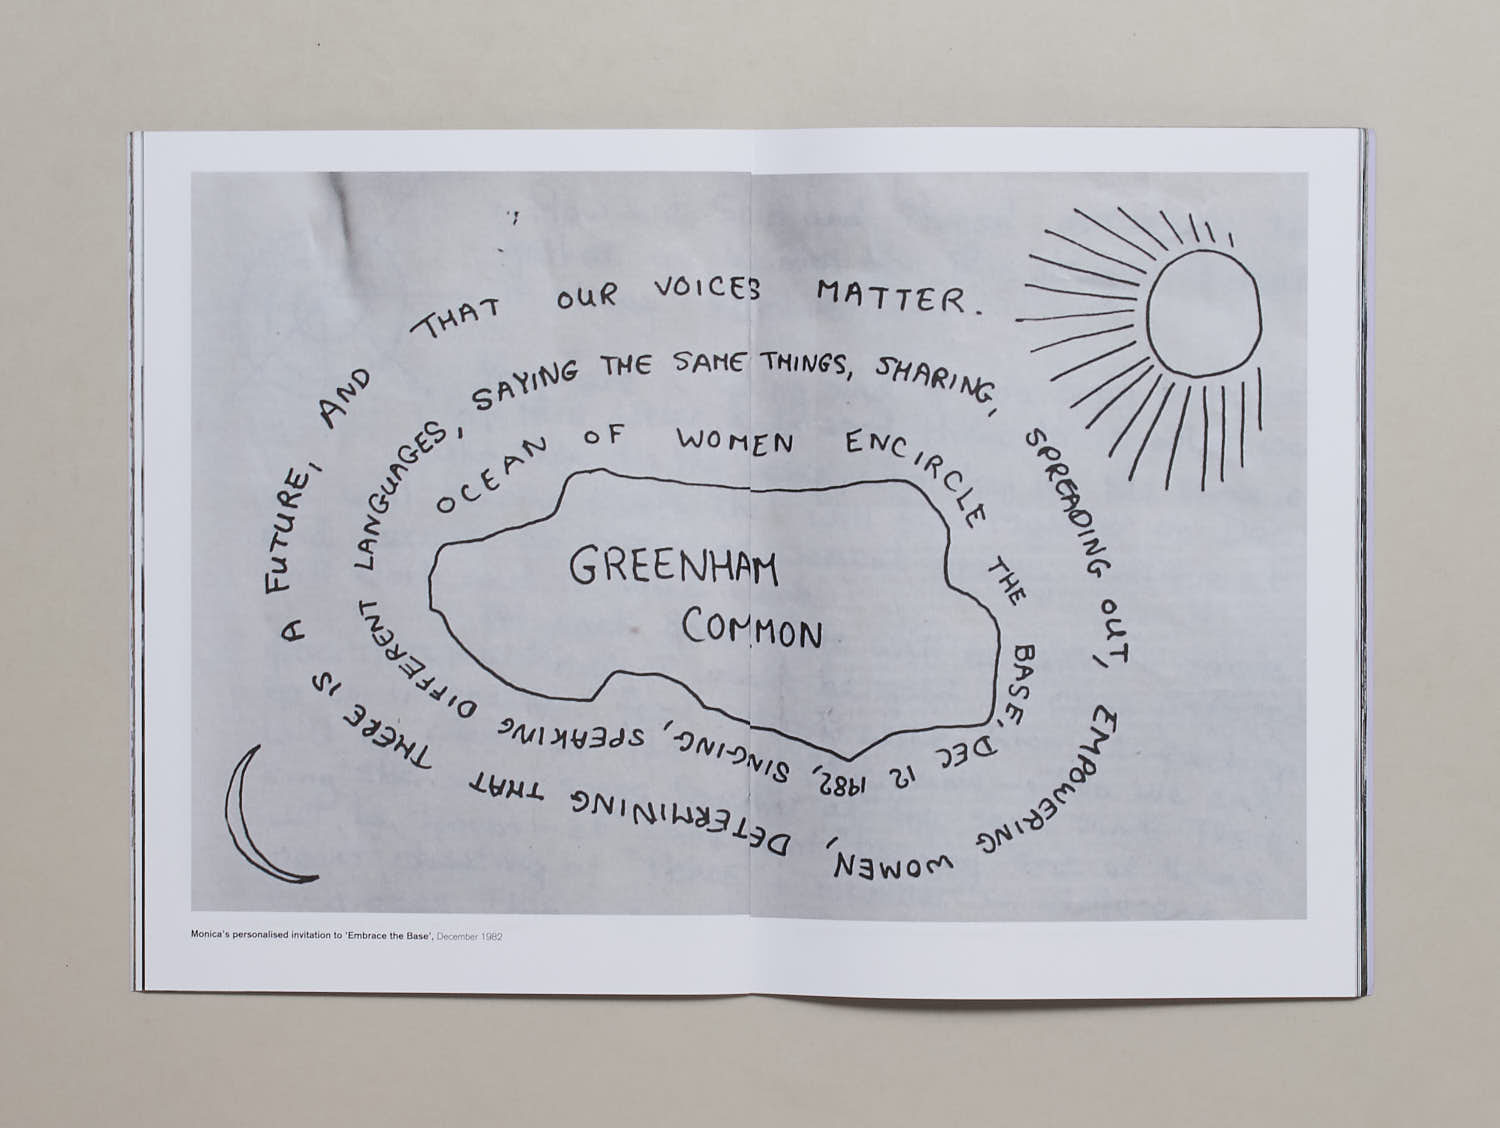 GREENHAM
COMMON
OCEAN OF WOMEN ENCIRCLE THE BASE, DEC 12 1982, SINGING, SPEAKING DIFFERENT LANGUAGES, SAYING THE SAME THINGS, SHARING, SPREADING OUT, EMPOWERING WOMEN, DETERMINING THAT THERE IS A FUTURE, AND THAT OUR VOICES MATTER.
Monica's personalised invitation to 'Embrace the Base', December 1982